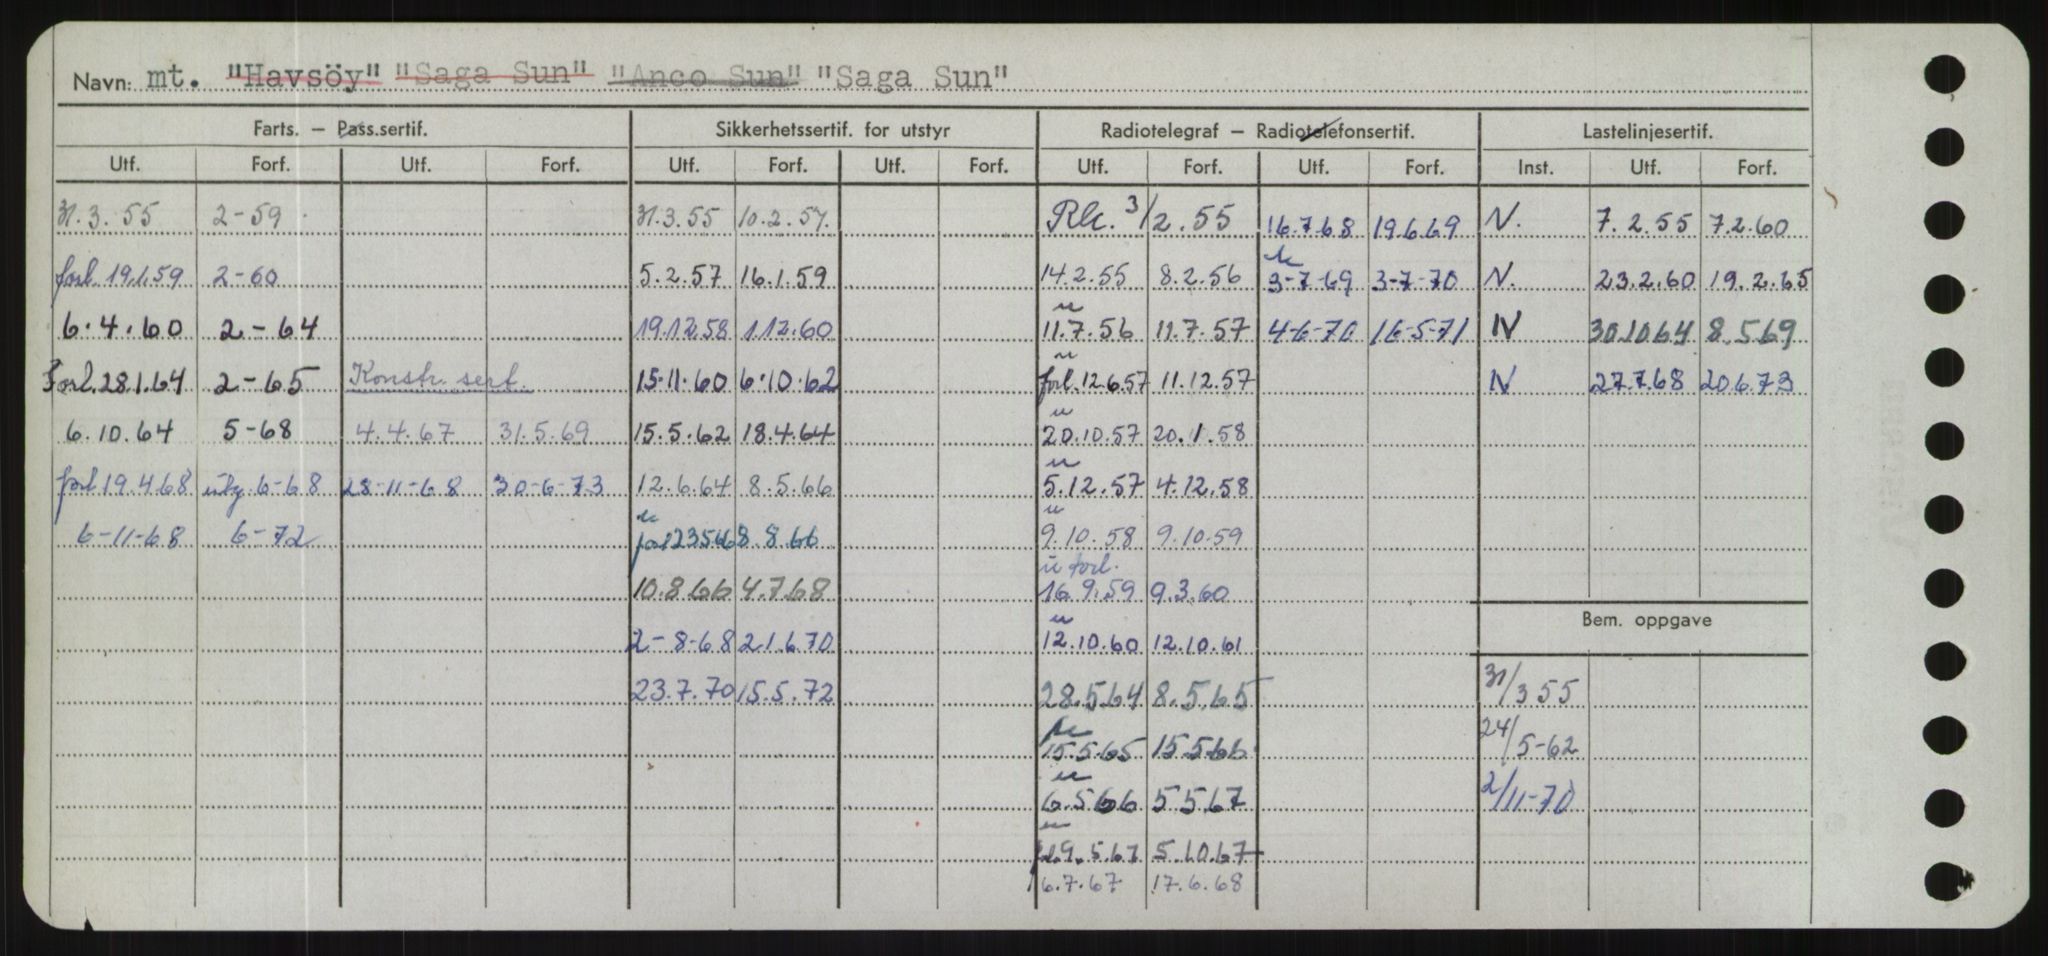 Navn: mt. "Havsöy" "Saga Sun" "Anco Sun" "Saga Sun"
Farts. — Pass.sertif. Sikkerhetssertif. for utstyr Radiotelegraf — Radiotelefonsertif. Lastelinjesertif.
Utf. Forf. Utf. Forf. Utf. Forf. Utf. Forf. Utf. Forf. Utf. Forf. Inst. Utf. Forf.
31.3.55 2-59 31.3.55 10.2.57. Rk. 3/2.55 16.7.68 19.6.69 N. 7.2.55 7.2.60
forl. 19.1.59 2-60 5.2.57 16.1.59 14.2.55 8.2.56 3-7-69 3-7-70 N. 23.2.60 19.2.65
6.4.60 2-64 19.12.58 1.12.60 11.7.56 11.7.57 4-6-70 16-5-71 N 30.10.64 8.5.69
Forl. 28.1.64 2-65 Konstr. sert. 15.11.60 6.10.62 forl. 12.6.57 11.12.57 N 27.7.68 20.6.73
6.10.64 5-68 4.4.67 31.5.69 15.5.62 18.4.64 20.10.57 20.1.58
forl 19.4.68 6-68 28-11-68 30-6-73 12.6.64 8.5.66 5.12.57 4.12.58
6-11-68 6-72 8.8.66 9.10.58 9.10.59
u forl.
10.8.66 4.7.68 16.9.59 9.3.60
Bem. oppgave
2-8-68 21.6.70 12.10.60 12.10.61
23.7.70 15.5.72 28.5.64 8.5.65 31/3 55
15.5.65 15.5.66 24/5-62
6.5.66 5.5.67 2/11-70
9.5.67 5.10.67
6.7.67 17.6.68